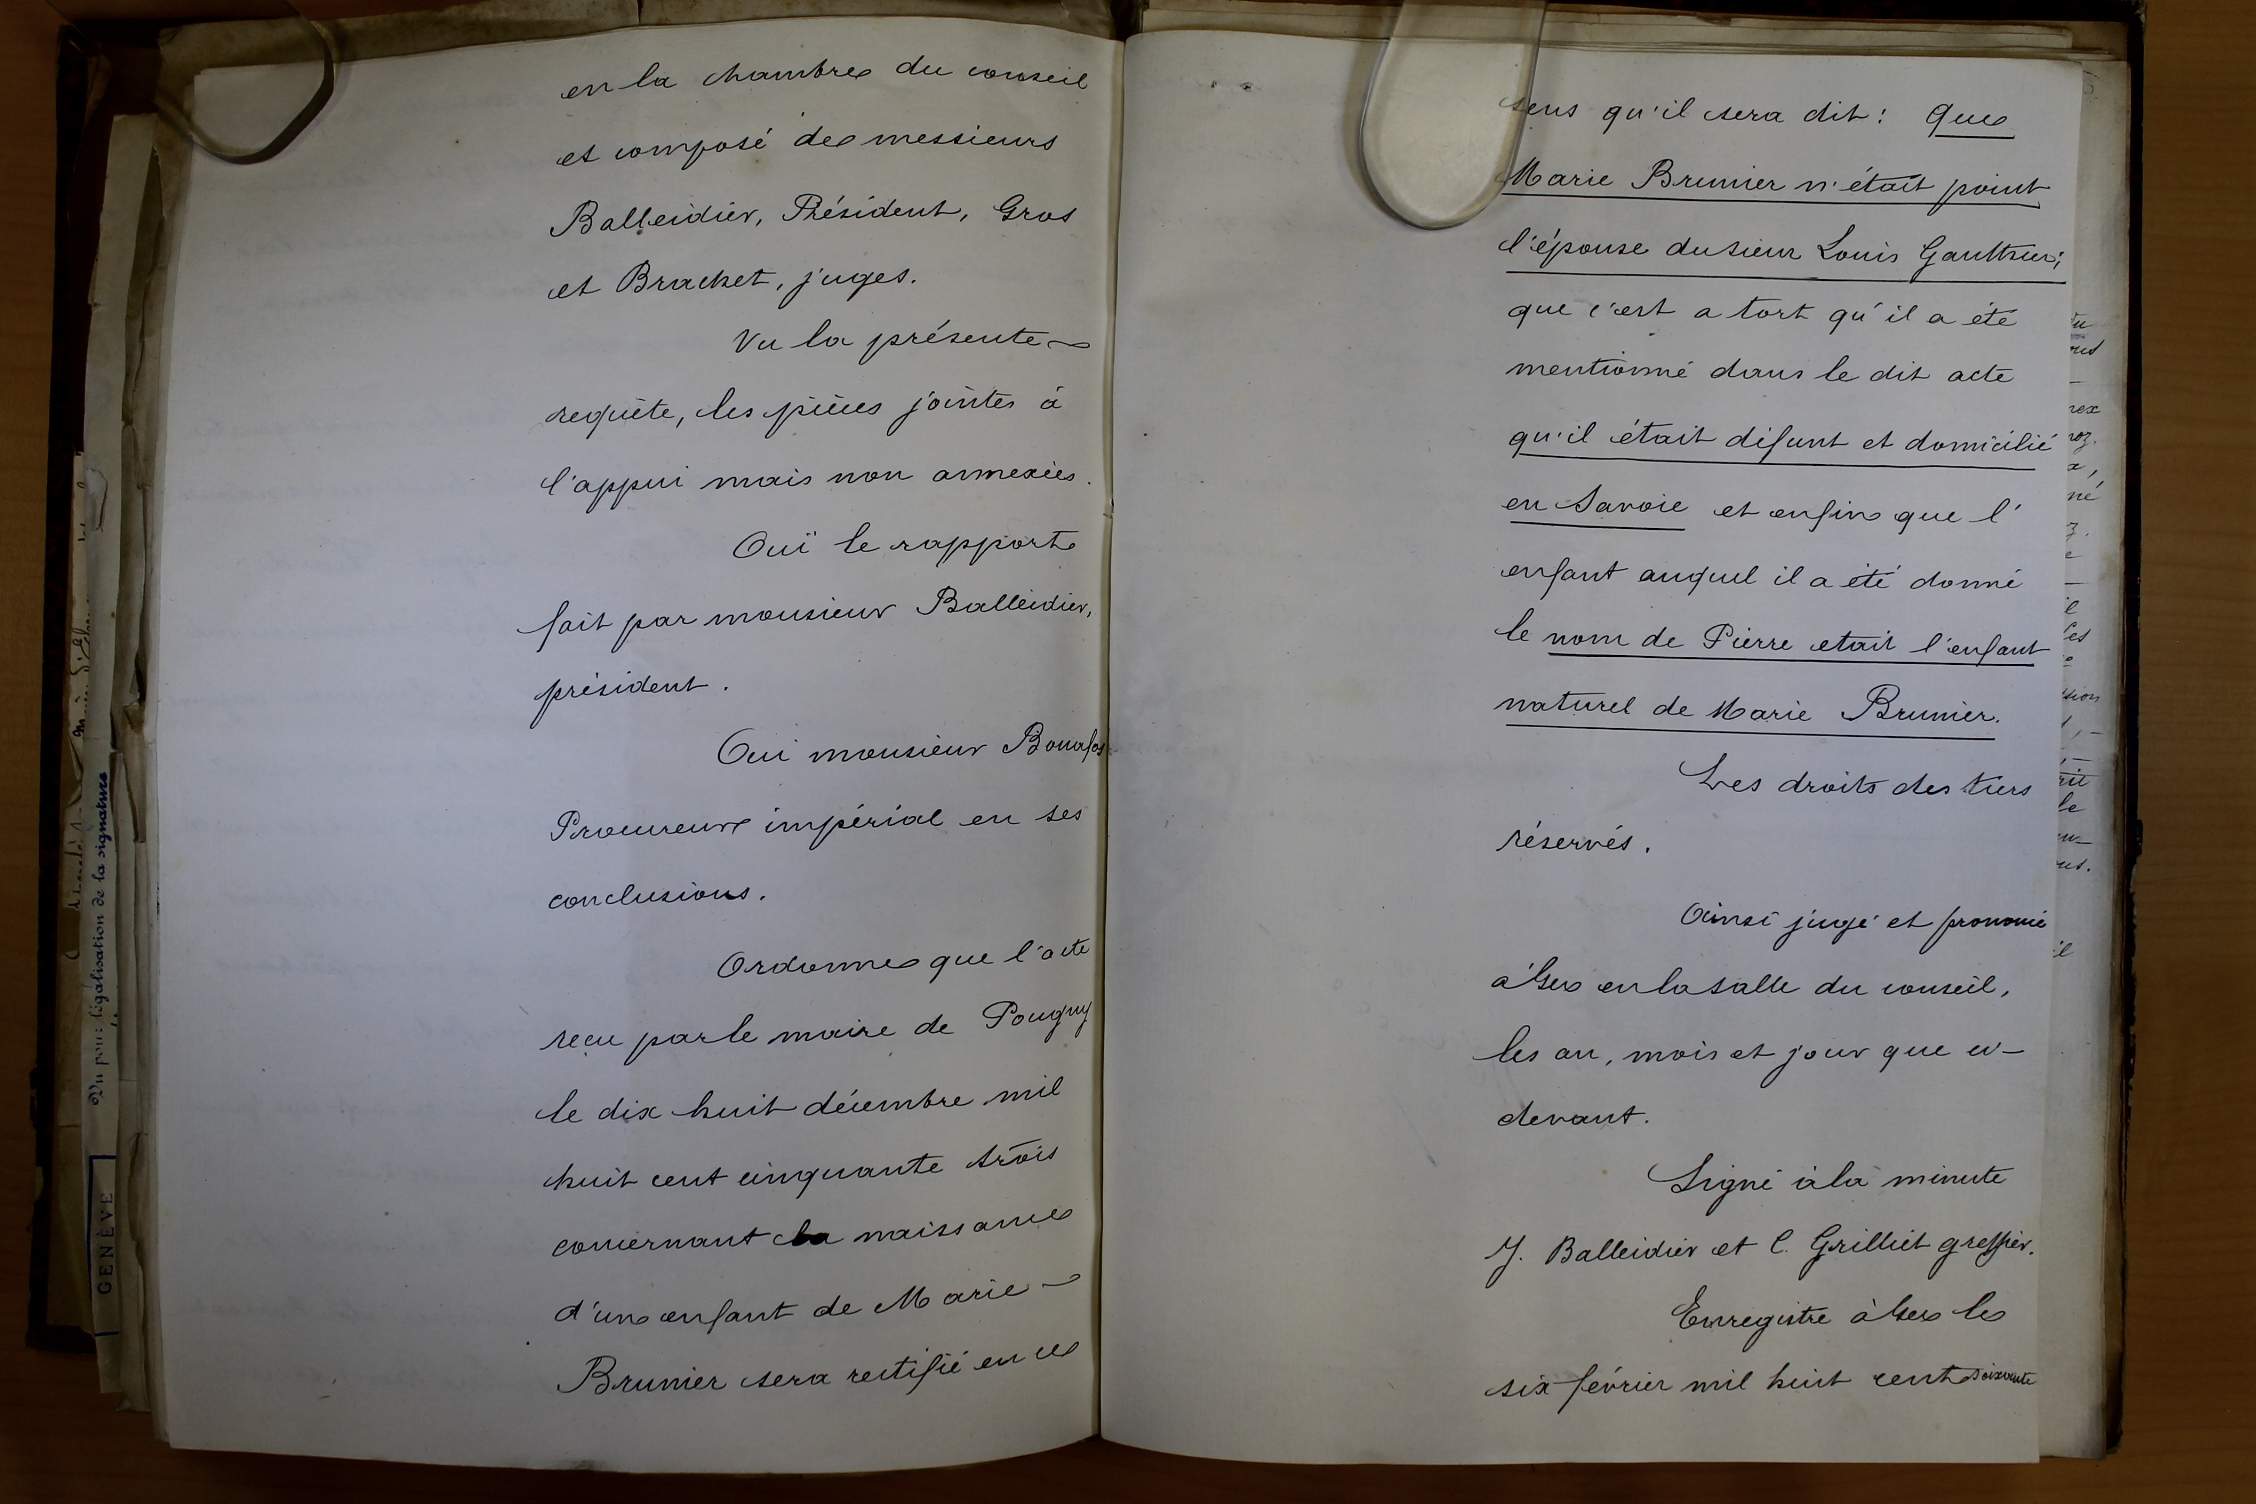 en la chambre du conseil
et composé de messieurs
Balleidier, Président, Gros
et Brachet, juges.
Vu la présente
requète, les pièces jointes à
l'appui mais non annexées.
Ouï le rapport
fait par monsieur Balleidier,
président.
Oui monsieur Bonafos
Procureur impérial en ses
conclusions.
Ordonne que l'acte
reçu par le maire de Pougny
le dix huit décembre mil
huit cent cinquante trois
concernant la naissance
d'un enfant de Marie
Brunier sera rectifié en ce
sens qu'il sera dit : Que
Marie Brunier n'était point
l'épouse du sieur Louis Gaulthier;
que c'est a tort qu'il a été
mentionné dans le dit acte
qu'il était défunt et domicilié
en Savoie et enfin que l'
enfant auquel il a été donné
le nom de Pierre etait l'enfant
naturel de Marie Brunier.
Les droits des tiers
réservés.
Ainsi jugé et prononcé
à Gex en la salle du conseil,
les an, mois et jour que ci-
devant.
Signé à la minute
J. Balleidier et C. Grilliet greffier.
Enregistre à Gex le
six février mil huit cent soixante
Vu pour légalisation de la signature
GENÈVE